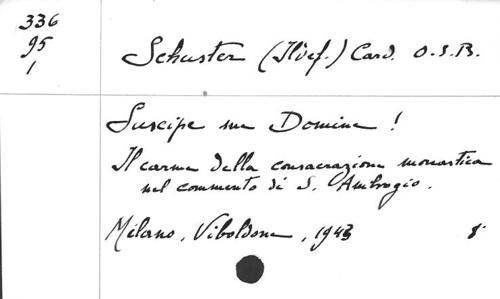 336
95
1
Schuster (Ildef.) Card. O.S.B.
Suscipe me Domine !
Il carme della consacrazione monastica
nel commento di S. Ambrogio.
Milano, Viboldone, 1943 8°